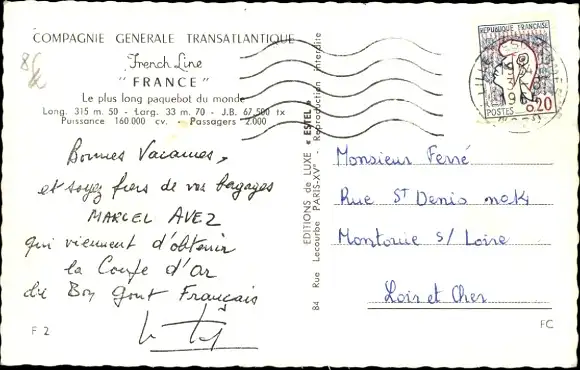 COMPAGNIE GENERALE TRANSATLANTIQUE
French Line
" FRANCE "
Le plus long paquebot du monde
Long. 315 m. 50 - Larg. 33 m. 70 - J.B. 67.500 tx
Puissance 160 000 cv. - Passagers 2.000
Bonnes Vacances,
et soyez fiers de vos bagages
MARCEL AVEZ
qui viennent d'obtenir
la Coupe d'Or
du Bon Gout Français
F 2
84 Rue Lecourbe PARIS-XVe
EDITIONS de LUXE « ESTEL » - Reproduction interdite
REPUBLIQUE FRANÇAISE
0,20
POSTES
Monsieur Ferré
Rue St Denis
Montorue s/ Loire
Loir et Cher
FC